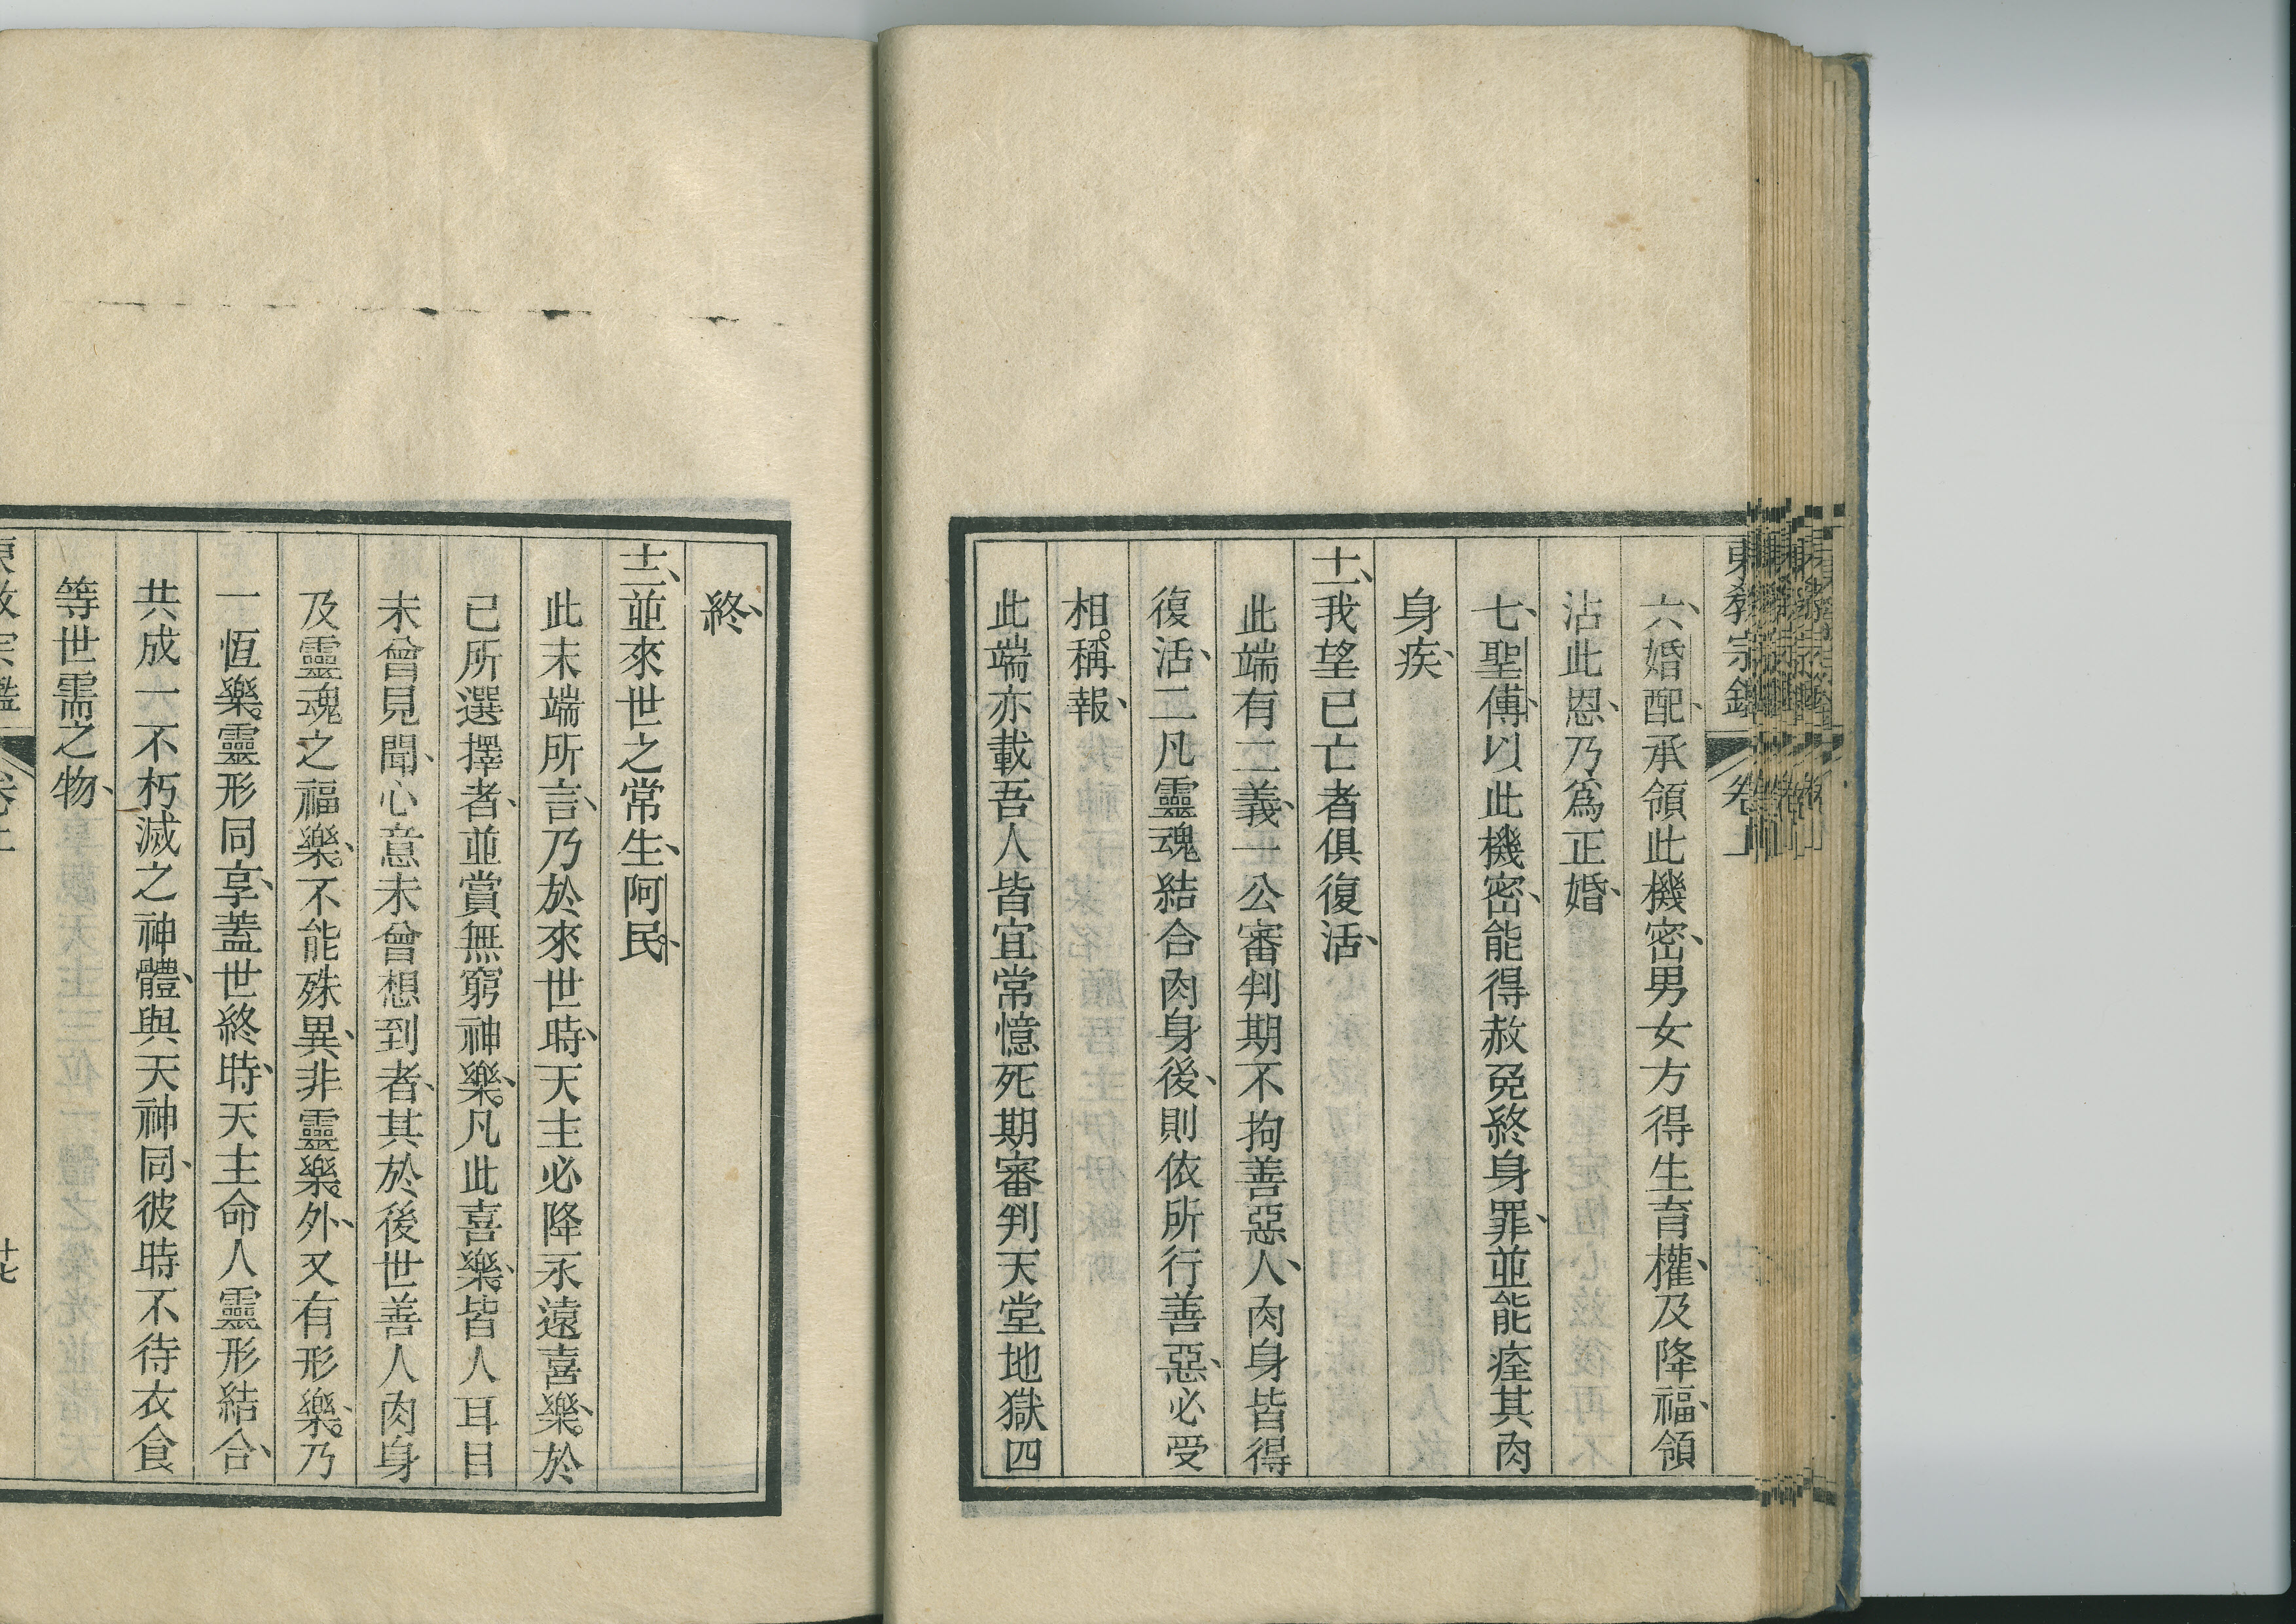 東教宗鑑 卷上
六、婚配、承領此機密、男女方得生育權、及降福、領
沾此恩、乃爲正婚、
七、聖傅、以此機密、能得赦免終身罪、並能痊其肉
身疾、
十一、我望已亡者俱復活、
此端有二義、一公審判期不拘善惡人、肉身皆得
復活、二凡靈魂結合肉身後、則依所行善惡、必受
相稱報、
此端亦載吾人皆宜常憶死期審判天堂地獄四
終、
十二、並來世之常生、阿民、
此末端所言、乃於來世時、天主必降永遠喜樂、於
已所選擇者、並賞無窮神樂、凡此喜樂、皆人耳目
未曾見聞、心意未曾想到者、其於後世善人肉身
及靈魂之福樂、不能殊異、非靈樂外、又有形樂、乃
一恆樂靈形同享、蓋世終時、天主命人靈形結合、
共成一不朽滅之神體、與天神同、彼時不待衣食
等世需之物、
東教宗鑑 卷上 廿七